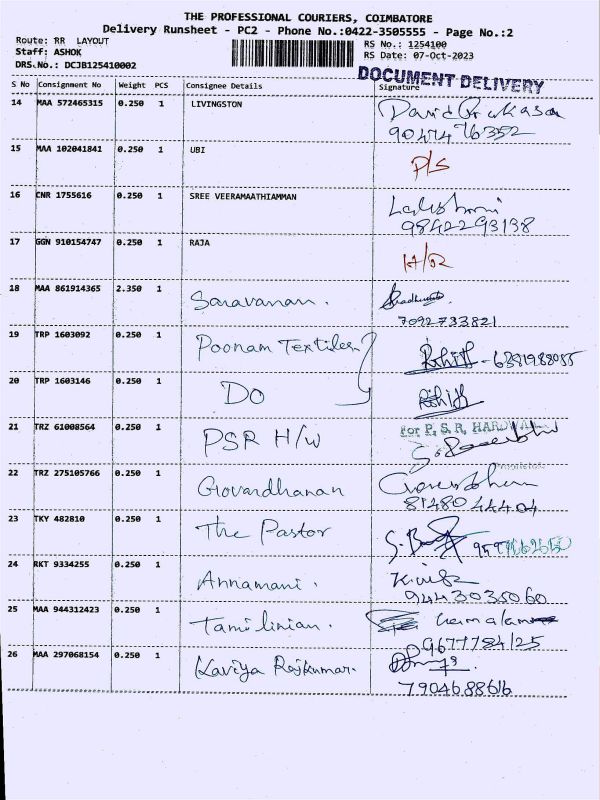 THE PROFESSIONAL COURIERS, COIMBATORE
Delivery Runsheet - PC2 - Phone No.:0422-3505555 - Page No.:2
Route: RR LAYOUT RS No.: 1254100
Staff: ASHOK RS Date: 07-Oct-2023
DRS.No.: DCJB125410002
DOCUMENT DELIVERY
S No Consignment No Weight PCS Consignee Details Signature
14 MAA 572465315 0.250 1 LIVINGSTON David
15 MAA 102041841 0.250 1 UBI P/S
16 CNR 1755616 0.250 1 SREE VEERAMAATHIAMMAN
9842293138
17 GGN 910154747 0.250 1 RAJA
18 MAA 861914365 2.350 1 Saravanan.
7092733821
19 TRP 1603092 0.250 1 Poonam Textiles Rohith
20 TRP 1603146 0.250 1 DO Rohith
21 TRZ 61008564 0.250 1 PSR H/W for P. S. R. HARDWARE
Proprietor
22 TRZ 275105766 0.250 1 Govardhanan
8148044404
23 TKY 482810 0.250 1 The Pastor
24 RKT 9334255 0.250 1 Annamani.
9443035060
25 MAA 944312423 0.250 1 Tamilinian.
9677784125
26 MAA 297068154 0.250 1 Kaviya Rajkumar.
7904688616